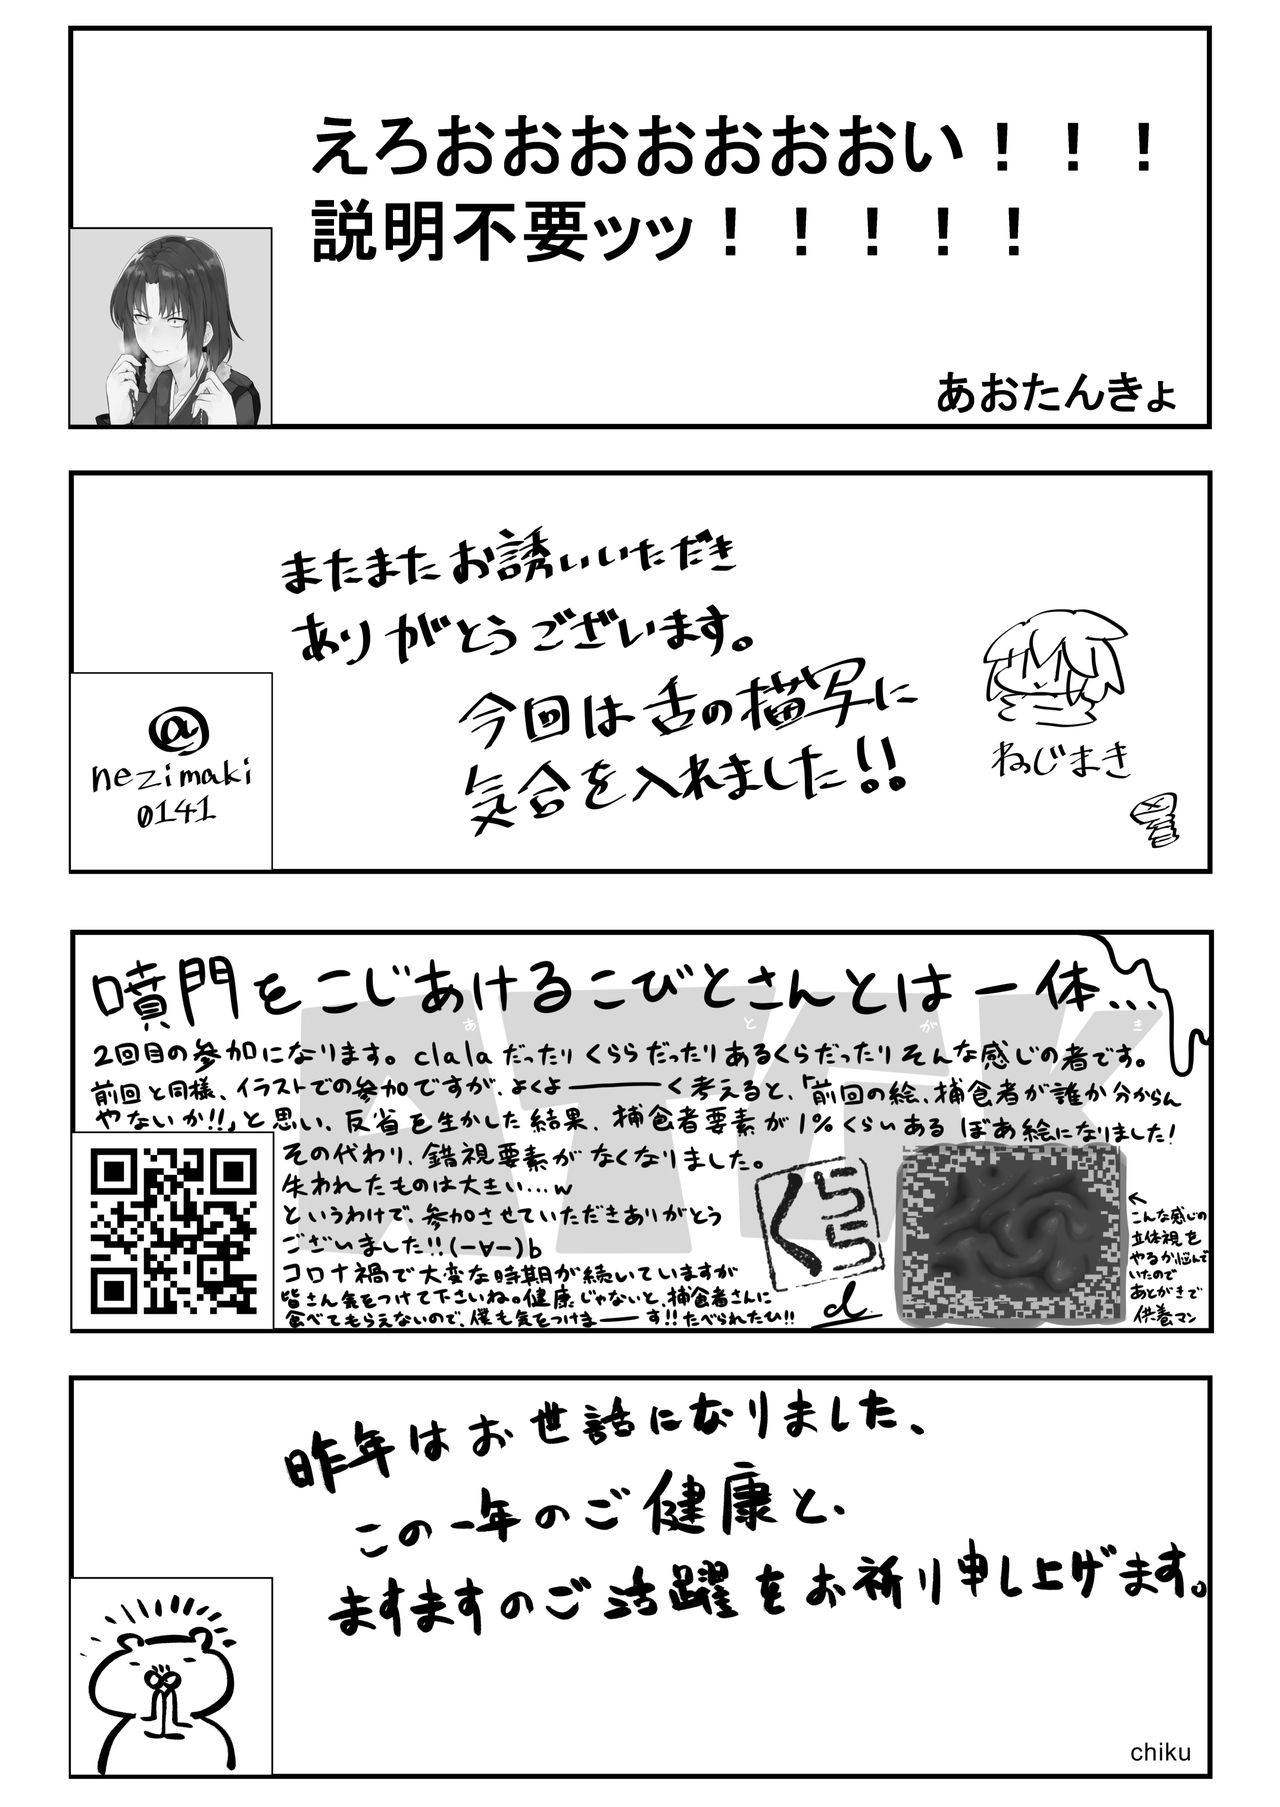 えろおおおおおおおい！！！
説明不要ッッ！！！！！
あおたんきょ
またまたお誘いいただき
ありがとうございます。
今回は舌の描写に
気合を入れました!!
ねじまき
@
nezimaki
0141
噴門をこじあけるこびとさんとは一体…
あとがき
2回目の参加になります。clalaだったりくららだったりあるくらだったりそんな感じの者です。
前回と同様、イラストでの参加ですが、よくよ———く考えると、「前回の絵、捕食者が誰か分からん
やないか!!」と思い、反省を生かした結果、捕食者要素が1%くらいあるぼあ絵になりました!
その代わり、錯視要素がなくなりました。
失われたものは大きい…w
というわけで、参加させていただきありがとう
ございました!!(-∀-)b
コロナ禍で大変な時期が続いていますが
皆さん気をつけて下さいね。健康じゃないと、捕食者さんに
食べてもらえないので、僕も気をつけま——す!!たべられたひ!!
くらら
d
←
こんな感じの
立体視を
やるか悩んで
いたので
あとがきで
供養マン
昨年はお世話になりました、
この一年のご健康と、
ますますのご活躍をお祈り申し上げます。
chiku